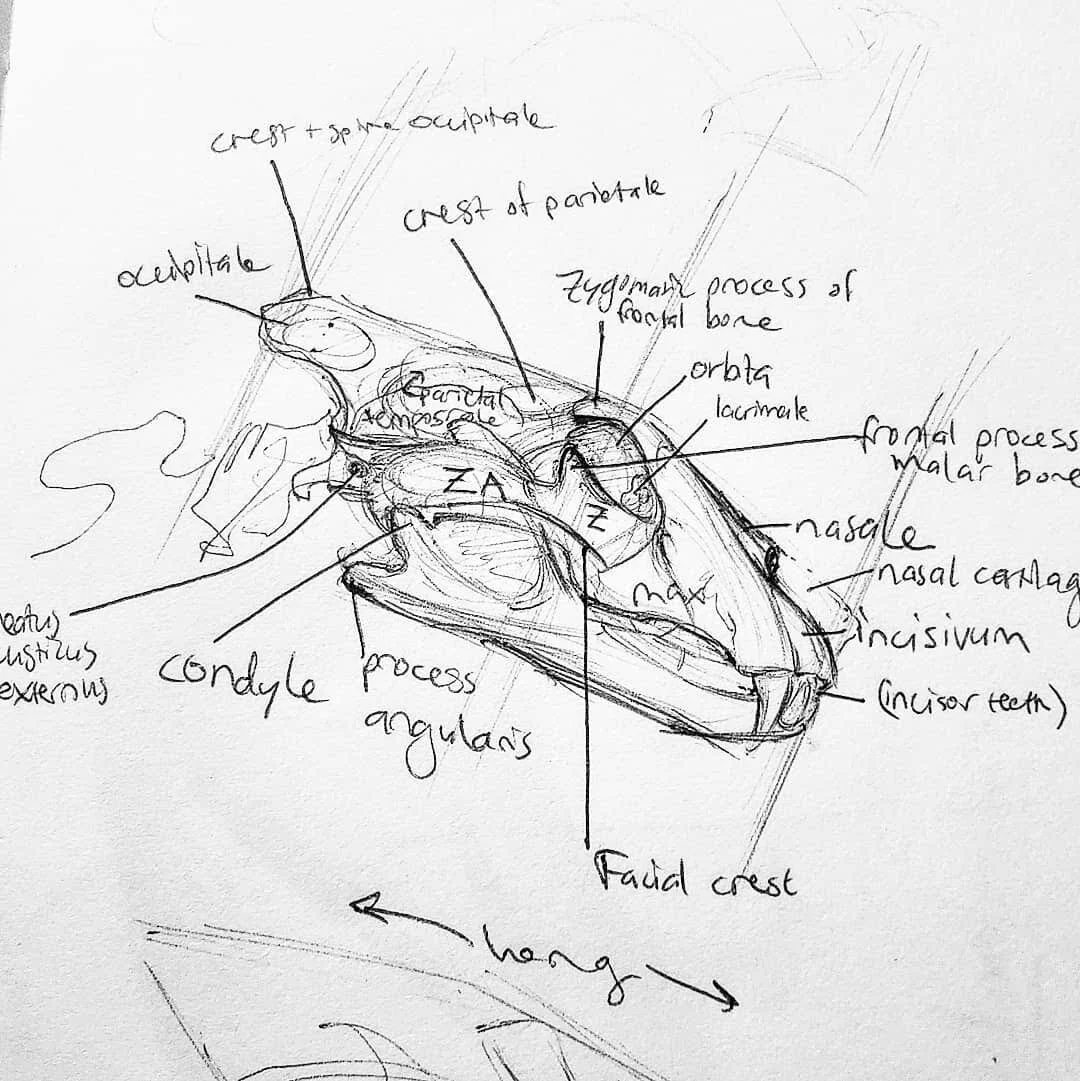 crest + spina occipitale
crest of parietale
occipitale
Zygomatic process of
frontal bone
orbita
lacrimale
parietal
temporale
frontal process
malar bone
ZA
Z
nasale
nasal cartilag
max
eatus
ustius
externus
incisivum
condyle
process
angularis
(incisor teeth)
Facial crest